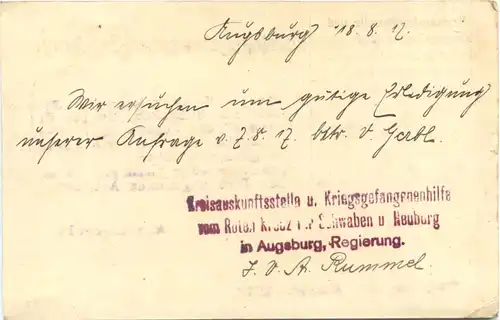 Augsburg 18.8.17.
Wir ersuchen um gütige Erledigung
unserer Anfrage v. 7.8.17. btr. V. Gerbl.
Kreisauskunftsstelle u. Kriegsgefangenenhilfe
vom Roten Kreuz für Schwaben u Neuburg
in Augsburg, Regierung.
J. V. A. Rummel.